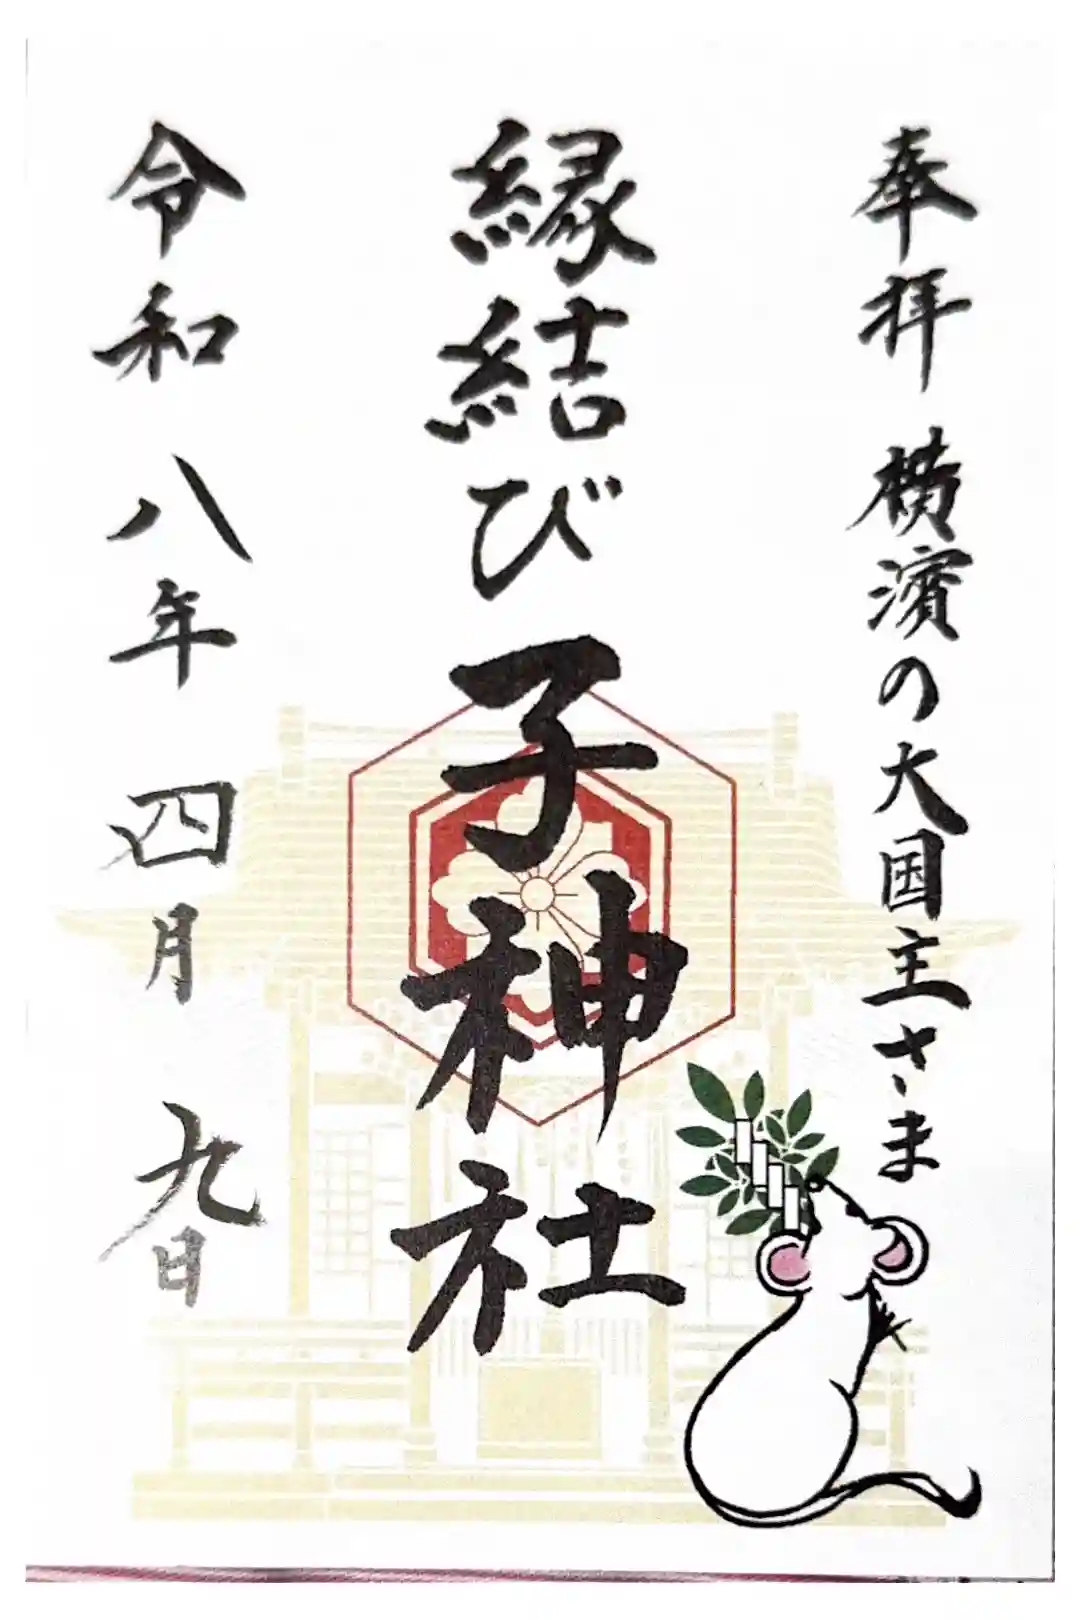 奉拝 横濱の大国主さま
縁結び 子神社
令和 八年 四月 九日